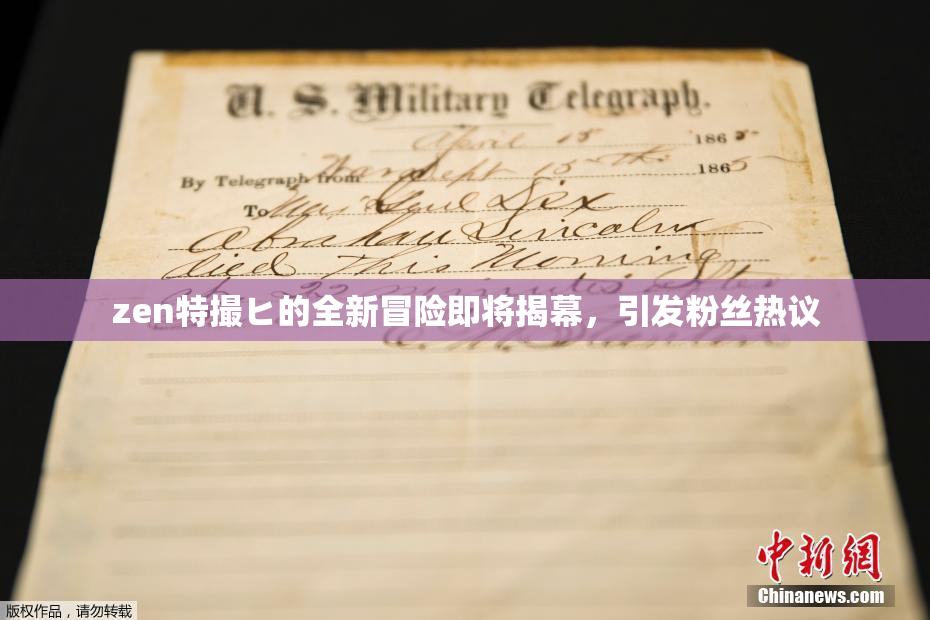 U. S. Military Telegraph.
April 15 1865
By Telegraph from War Dept 15th 1865
To Maj Genl Dix
Abraham Lincoln
died This Morning
at 22 minutes after
zen特撮ヒ的全新冒险即将揭幕，引发粉丝热议
E. M. Stanton
中新网
Chinanews.com
版权作品，请勿转载